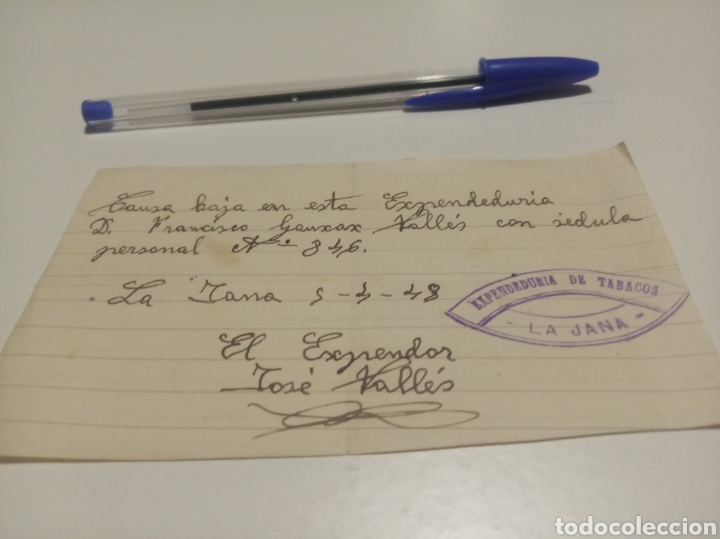 Causa baja en esta Expendeduria
D. Francisco Vallés con sedula
personal Nº 346.
La Jana 5-4-48
EXPENDEDURIA DE TABACOS
- LA JANA -
El Expendor
José Vallés
todocoleccion